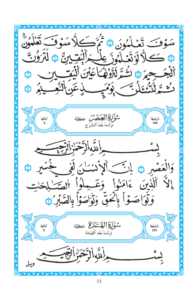 سَوْفَ تَعْلَمُونَ ۝ ثُمَّ كَلَّا سَوْفَ تَعْلَمُونَ
۝ كَلَّا لَوْ تَعْلَمُونَ عِلْمَ ٱلْيَقِينِ ۝ لَتَرَوُنَّ
ٱلْجَحِيمَ ۝ ثُمَّ لَتَرَوُنَّهَا عَيْنَ ٱلْيَقِينِ
۝ ثُمَّ لَتُسْـَٔلُنَّ يَوْمَئِذٍ عَنِ ٱلنَّعِيمِ ۝
سُورَةُ ٱلْعَصْرِ
بِسْمِ ٱللَّهِ ٱلرَّحْمَٰنِ ٱلرَّحِيمِ
وَٱلْعَصْرِ ۝ إِنَّ ٱلْإِنسَٰنَ لَفِى خُسْرٍ ۝
إِلَّا ٱلَّذِينَ ءَامَنُوا۟ وَعَمِلُوا۟ ٱلصَّٰلِحَٰتِ
وَتَوَاصَوْا۟ بِٱلْحَقِّ وَتَوَاصَوْا۟ بِٱلصَّبْرِ ۝
سُورَةُ ٱلْهُمَزَةِ
بِسْمِ ٱللَّهِ ٱلرَّحْمَٰنِ ٱلرَّحِيمِ
وَيْلٌ